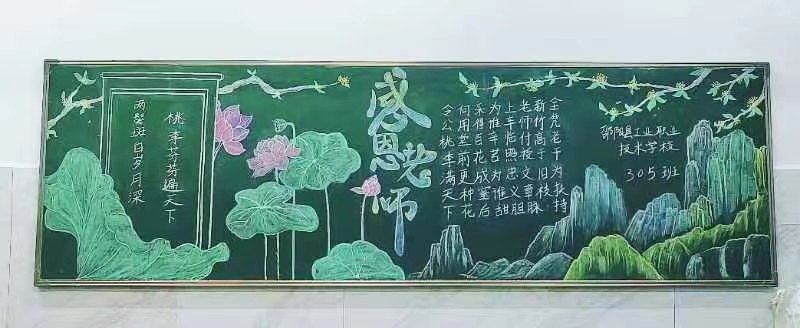 桃李芬芬遍天下
两鬓斑白岁月深
感恩老师
全凭老干为扶持
新竹高于旧枝
老师付授文章脉
上临照忠义胆
为谁辛苦为谁甜
采得百花成蜜后
何用堂前更种花
令公桃李满天下
邵阳县工业职业
技术学校
305班